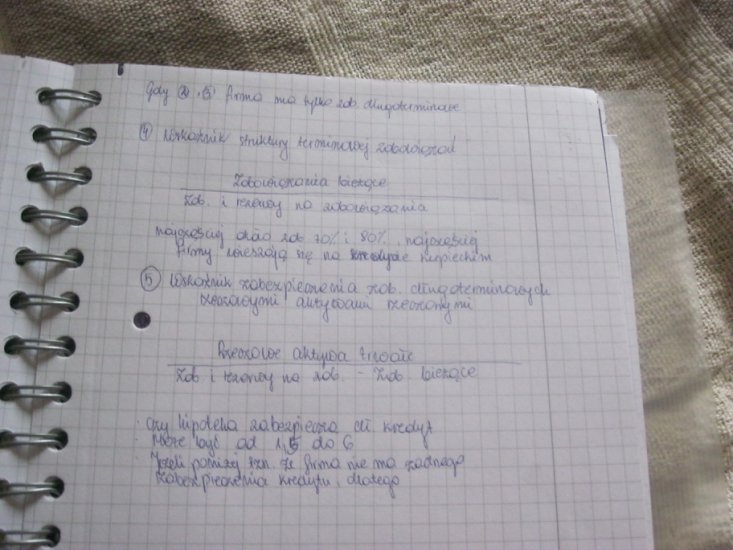 Gdy firma ma tylko zob długoterminowe
④ Wskaźnik struktury terminowej zobowiązań
Zobowiązania bieżące
Zob. i rezerwy na zobowiązania
najczęściej około zob 70% i 80%, najczęściej
firmy wieszają się na kredycie kupieckim
⑤ Wskaźnik zabezpieczenia zob. długoterminowych
rzeczowymi aktywami rzeczowymi
Rzeczowe aktywa trwałe
Zob i rezerwy na zob. - Zob. bieżące
· czy hipoteka zabezpiecza dł kredyt
· Może być od 1,5 do 6
· Jeżeli poniżej tzn. że firma nie ma żadnego
zabezpieczenia kredytu dłużego